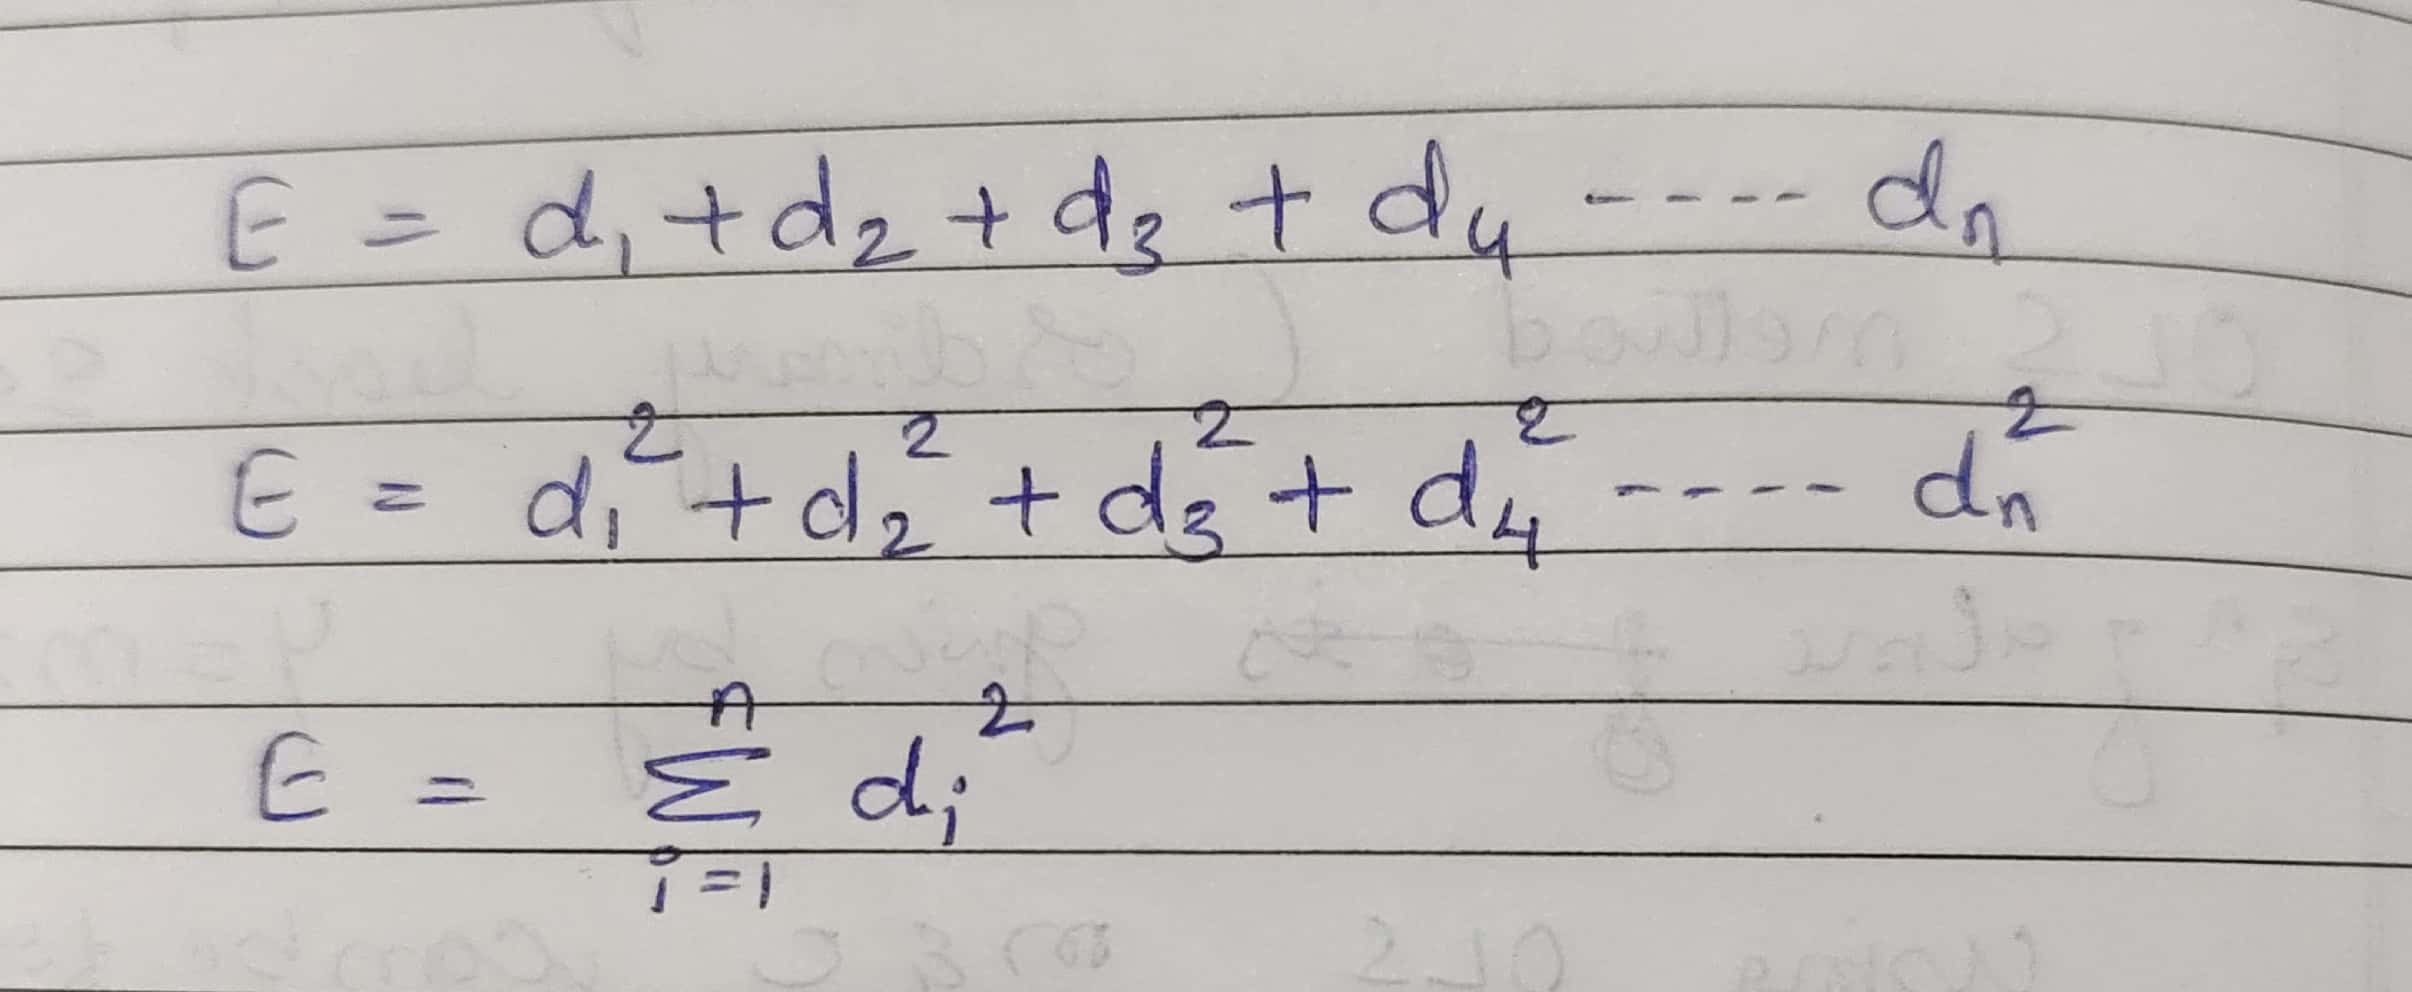 E = d₁ + d₂ + d₃ + d₄ ---- dₙ
E = d₁² + d₂² + d₃² + d₄² ---- dₙ²
n
E = Σ dᵢ²
i=1